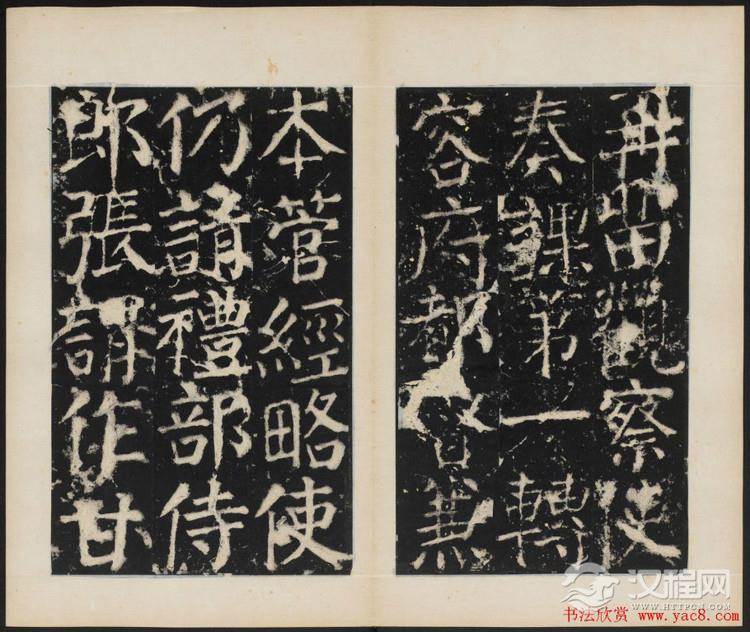 再留觀察使
奏課第一轉
容府都督兼
本管經略使
仍請禮部侍
郎張謂作甘
汉程网
WWW.HTTPCN.COM
书法欣赏 www.yac8.com